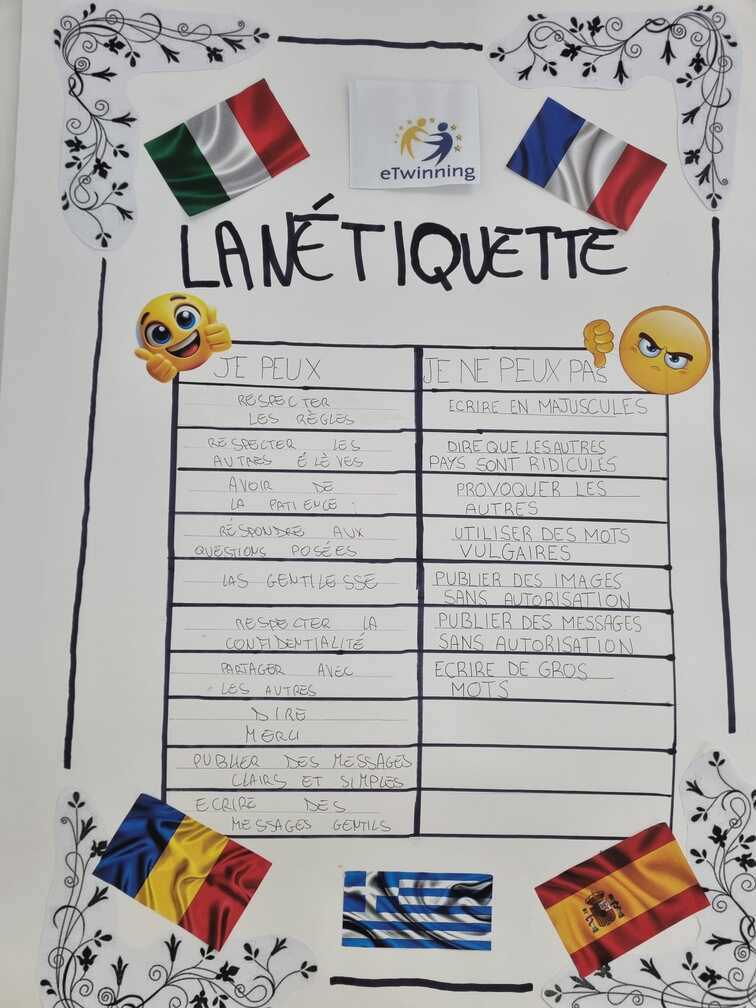 eTwinning
LA NÉTIQUETTE
JE PEUX
JE NE PEUX PAS
RESPECTER
LES RÈGLES
ECRIRE EN MAJUSCULES
RESPECTER LES
AUTRES ÉLÈVES
DIRE QUE LES AUTRES
PAYS SONT RIDICULES
AVOIR DE
LA PATIENCE
PROVOQUER LES
AUTRES
RÉSPONDRE AUX
QUESTIONS POSÉES
UTILISER DES MOTS
VULGAIRES
LAS GENTILESSE
PUBLIER DES IMAGES
SANS AUTORISATION
RESPECTER LA
CONFIDENTIALITÉ
PUBLIER DES MESSAGES
SANS AUTORISATION
PARTAGER AVEC
LES AUTRES
ECRIRE DE GROS
MOTS
DIRE
MERCI
PUBLIER DES MESSAGES
CLAIRS ET SIMPLES
ECRIRE DES
MESSAGES GENTILS